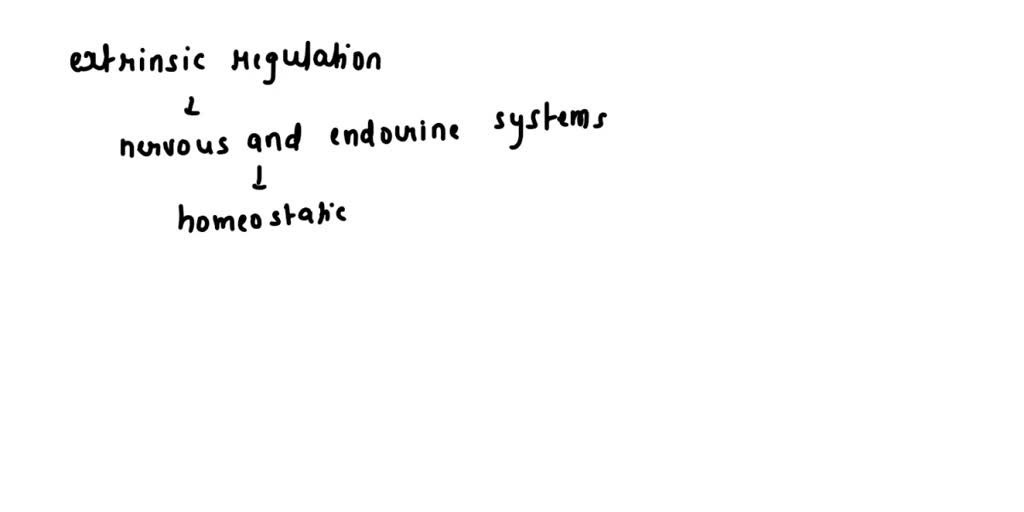 extrinsic regulation
↓
nervous and endocrine systems
↓
homeostatic